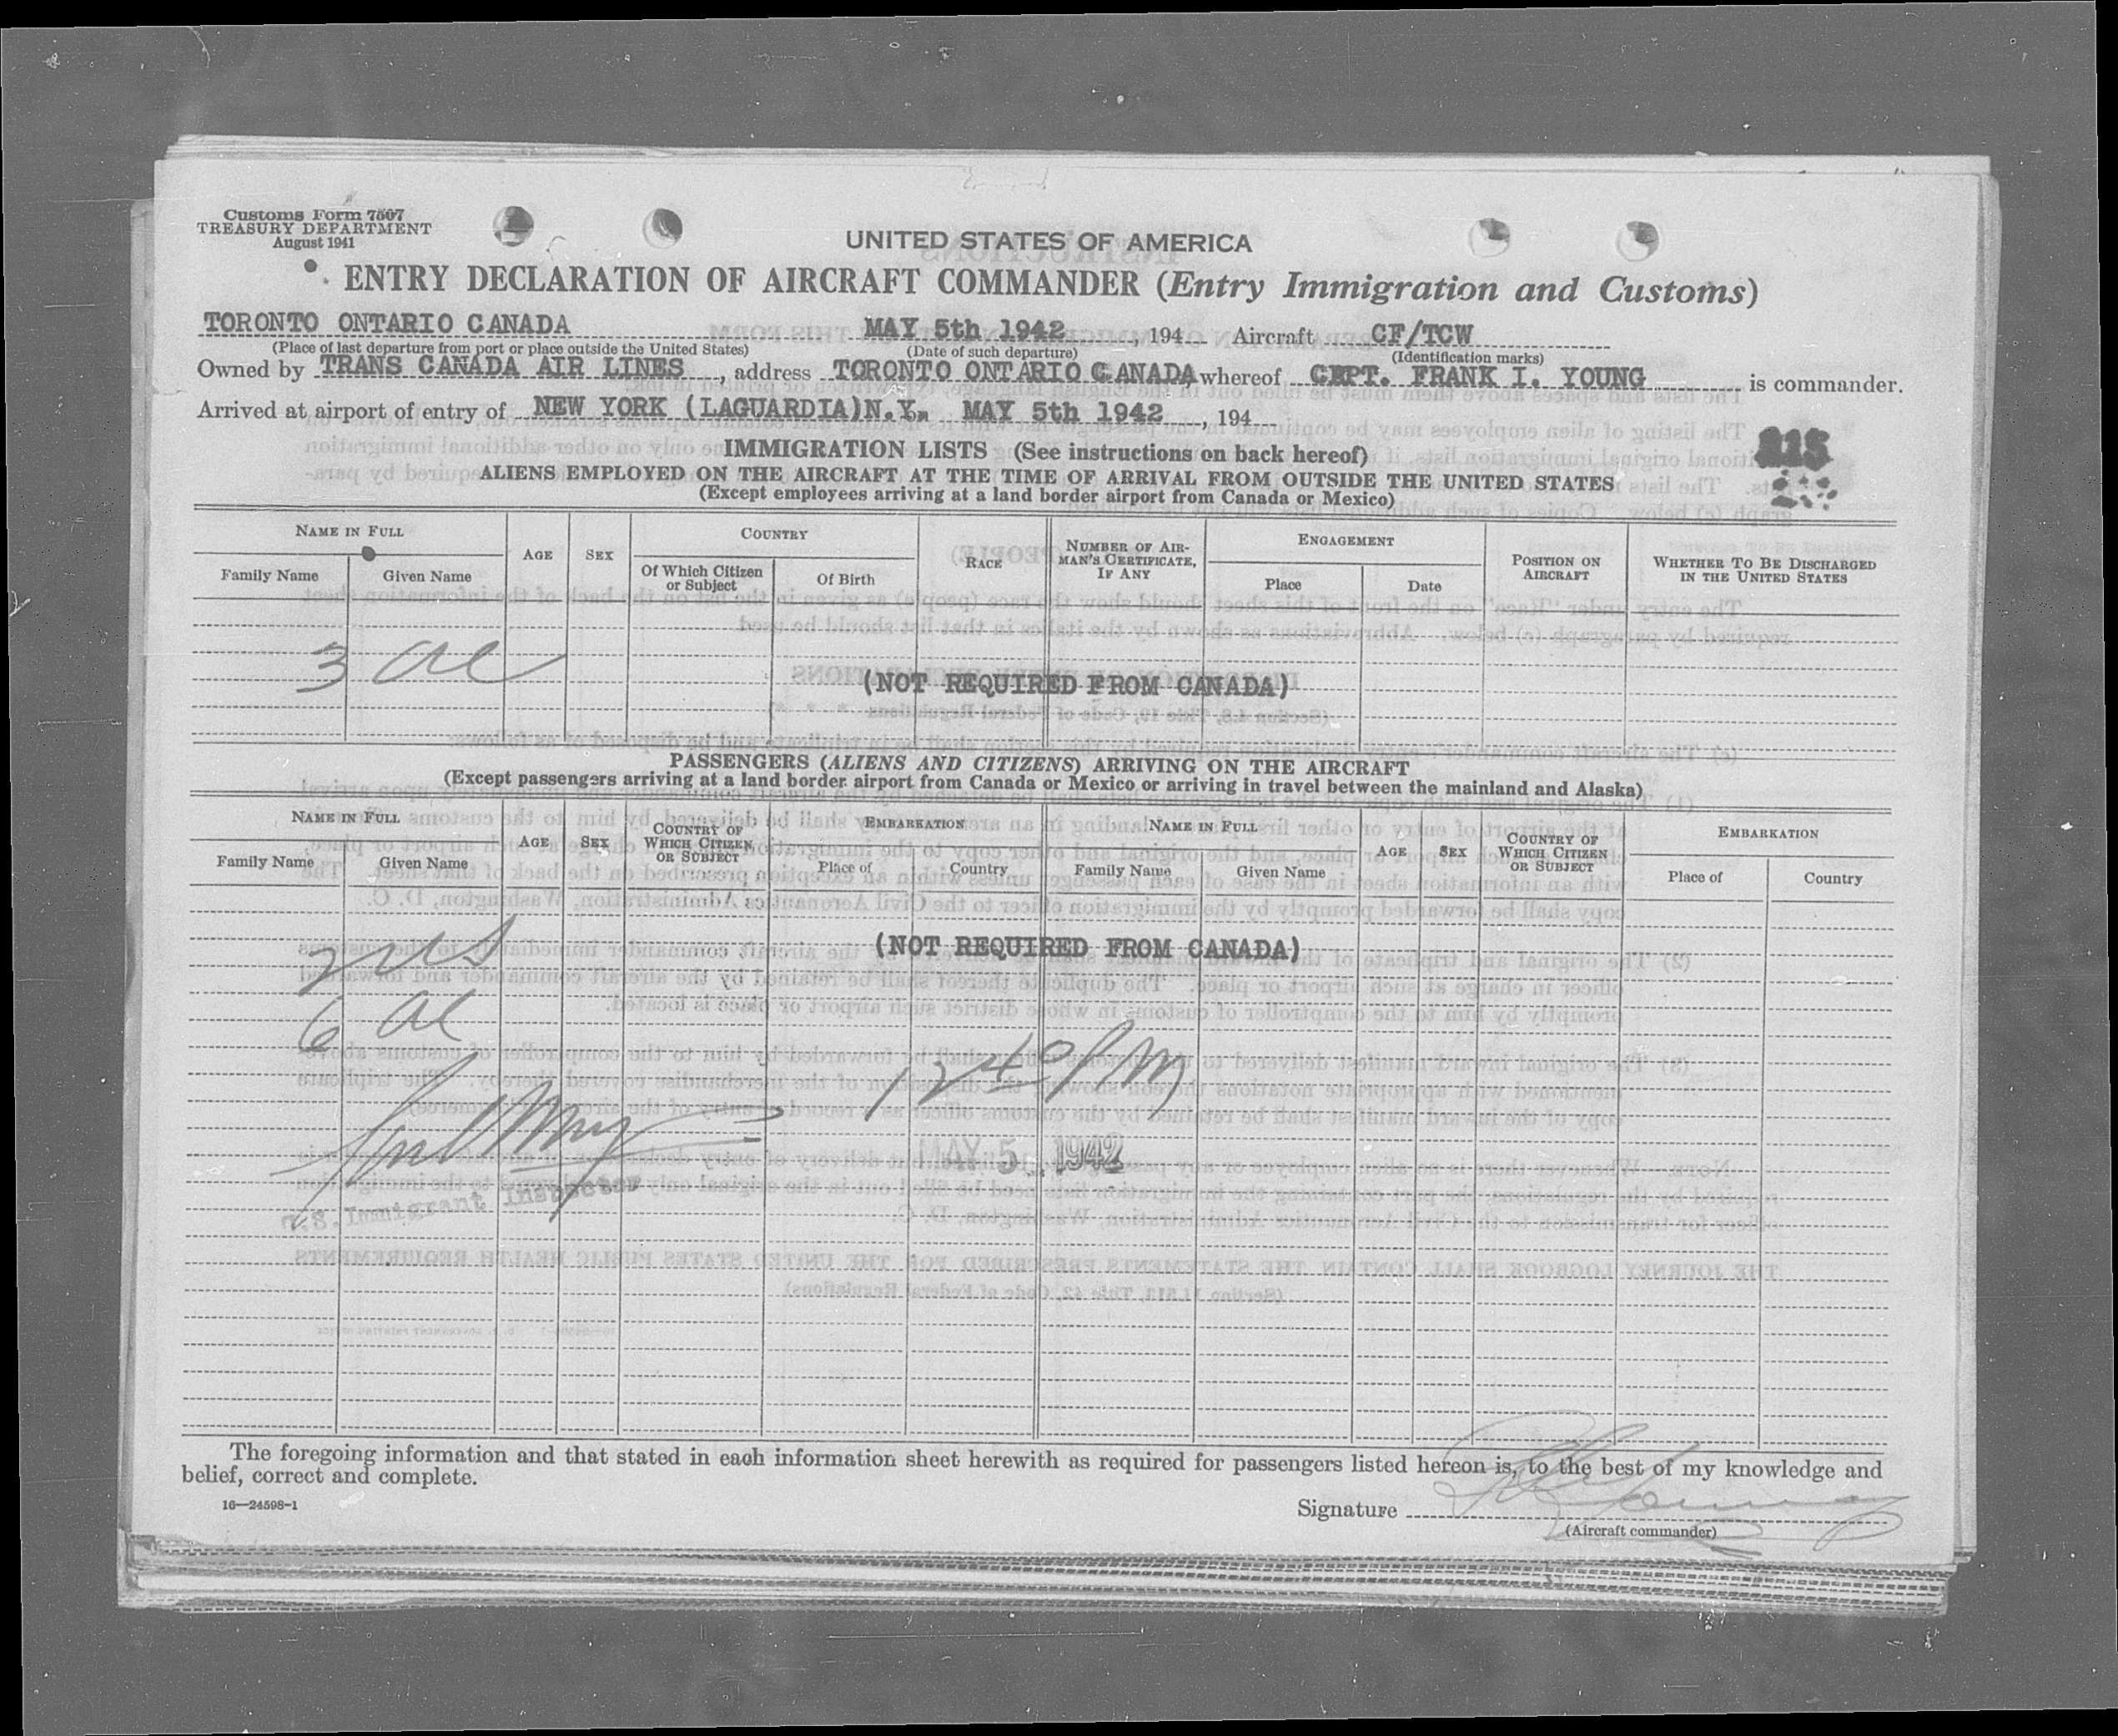 Customs Form 7507
TREASURY DEPARTMENT
August 1941
UNITED STATES OF AMERICA
ENTRY DECLARATION OF AIRCRAFT COMMANDER (Entry Immigration and Customs)
TORONTO ONTARIO CANADA MAY 5th 1942, 194 Aircraft CF/TCW
(Place of last departure from port or place outside the United States) (Date of such departure) (Identification marks)
Owned by TRANS CANADA AIR LINES, address TORONTO ONTARIO CANADA whereof CEPT. FRANK I. YOUNG is commander.
Arrived at airport of entry of NEW YORK (LAGUARDIA) N.Y. MAY 5th 1942, 194
IMMIGRATION LISTS (See instructions on back hereof)
215
ALIENS EMPLOYED ON THE AIRCRAFT AT THE TIME OF ARRIVAL FROM OUTSIDE THE UNITED STATES
(Except employees arriving at a land border airport from Canada or Mexico)
NAME IN FULL AGE SEX COUNTRY RACE NUMBER OF AIRMAN'S CERTIFICATE, IF ANY ENGAGEMENT POSITION ON AIRCRAFT WHETHER TO BE DISCHARGED IN THE UNITED STATES
Family Name Given Name Of Which Citizen or Subject Of Birth Place Date
3 al
(NOT REQUIRED FROM CANADA)
PASSENGERS (ALIENS AND CITIZENS) ARRIVING ON THE AIRCRAFT
(Except passengers arriving at a land border airport from Canada or Mexico or arriving in travel between the mainland and Alaska)
NAME IN FULL AGE SEX COUNTRY OF WHICH CITIZEN OR SUBJECT EMBARKATION NAME IN FULL AGE SEX COUNTRY OF WHICH CITIZEN OR SUBJECT EMBARKATION
Family Name Given Name Place of Country Family Name Given Name Place of Country
2 US
(NOT REQUIRED FROM CANADA)
6 al
1240 PM
MAY 5 1942
U.S. Immigrant Inspector
The foregoing information and that stated in each information sheet herewith as required for passengers listed hereon is, to the best of my knowledge and
belief, correct and complete.
16—24598-1
Signature
(Aircraft commander)